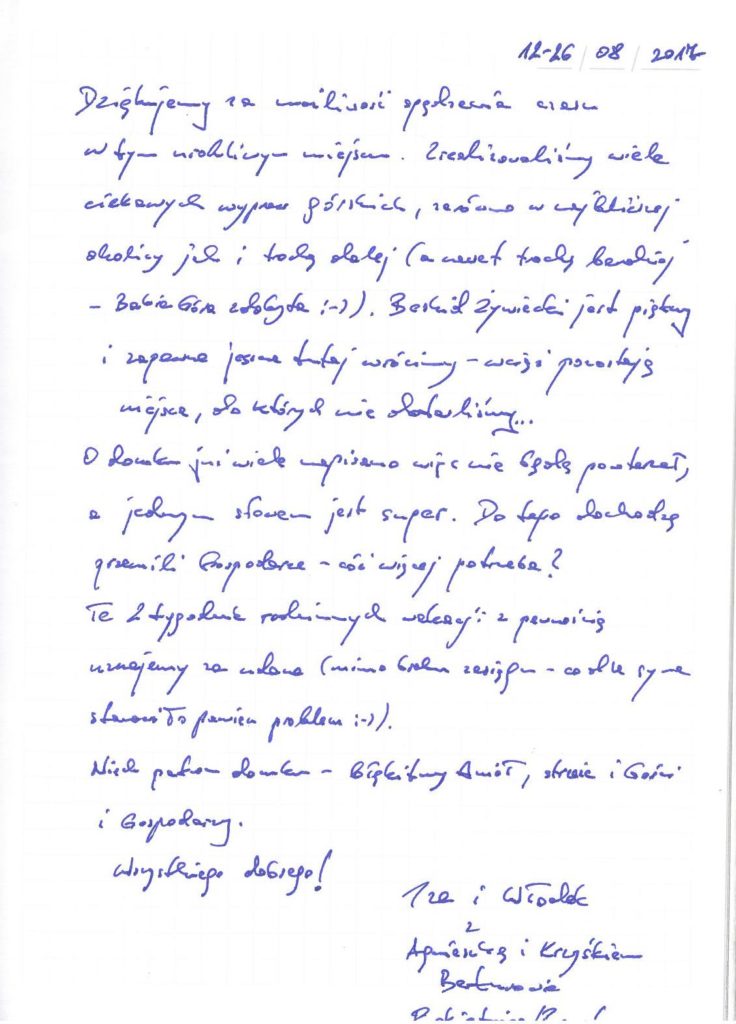 12-26 / 08 / 2017
Dziękujemy za możliwość spędzenia czasu
w tym urokliwym miejscu. Zrealizowaliśmy wiele
ciekawych wypraw górskich, zarówno w najbliższej
okolicy jak i trochę dalej (a nawet trochę bardziej
- Babia Góra zdobyta :-)). Beskid Żywiecki jest piękny
i zapewne jeszcze tutaj wrócimy - wciąż pozostają
miejsca, do których nie dotarliśmy...
O domku już wiele napisano więc nie będę powtarzał,
a jednym słowem jest super. Do tego dochodzą
przemili Gospodarze - cóż więcej potrzeba?
Te 2 tygodnie rodzinnych wakacji z pewnością
uznajemy za udane (mimo braku zasięgu - co dla syna
stanowiło pewien problem :-)).
Niech patron domku - Błękitny Anioł, strzeże i Gości
i Gospodarzy.
Wszystkiego dobrego!
Iza i Włodek
z
Agnieszką i Krzyśkiem